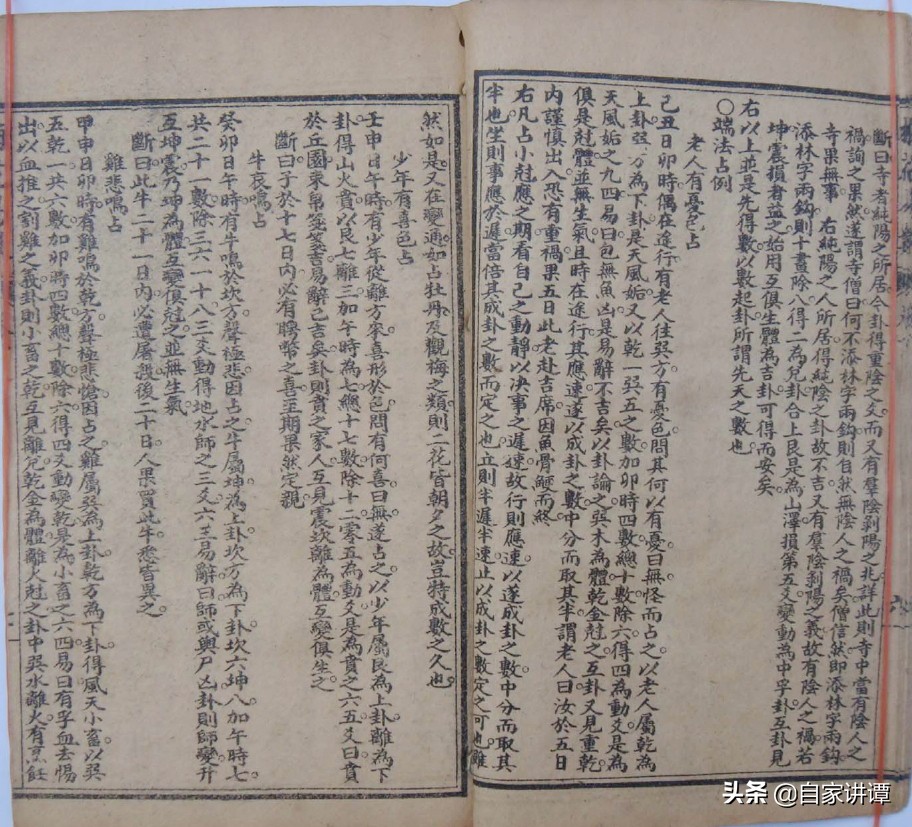 斷曰寺者純陽之所居今卦得重陰之爻而又有羣陰剥陽之兆詳此則寺中當有陰人之
禍詢之果然遂謂寺僧曰何不添林字兩鈎則自然無陰人之禍矣僧信然即添林字兩鈎
寺果無事 右純陽之人所居得純陰之卦故不吉又有羣陰剥陽之義故有陰人之禍若
添林字兩鈎則十畫除八得二為兌卦合上艮是為山澤損第五爻變動為中孚卦互卦見
坤震損者益之始用互俱生體為吉卦可得而安矣
右以上並是先得數以數起卦所謂先天之數也
○端法占例
老人有憂色占
己丑日卯時偶在途行有老人往巽方有憂色問其何以有憂曰無怪而占之以老人屬乾為
上卦巽方為下卦是天風姤又以乾一巽五之數加卯時四數總十數除六得四為動爻是為
天風姤之九四易曰包無魚凶是易辭不吉矣以卦論之巽木為體乾金尅之互卦又見重乾
俱是尅體並無生氣且時在途行其應速遂以成卦之數中分而取其半謂老人曰汝於五日
內謹慎出入恐有重禍果五日此老赴吉席因魚骨鯁而終
右凡占卜尅應之期看自己之動靜以決事之遲速故行則應速以遂成卦之數中分而取其
半也坐則事應於遲當倍其成卦之數而定之也立則半遲半速止以成卦之數定之可也雖
然如是又在變通如占牡丹及觀梅之類則二花皆朝夕之故豈特成數之久也
少年有喜色占
壬申日午時有少年從離方來喜形於色問有何喜曰無遂占之以少年屬艮為上卦離為下
卦得山火賁以艮七離三加午時為七總十七數除十二零五為動爻是為賁之六五爻曰賁
於丘園束帛戔戔吉易辭已吉矣卦則賁之家人互見震坎離為體互變俱生之
斷曰子於十七日內必有聘幣之喜至期果然定親
牛哀鳴占
癸卯日午時有牛鳴於坎方聲極悲因占之牛屬坤為上卦坎方為下卦坎六坤八加午時七
共二十一數除三六一十八三爻動得地水師之三爻六三易辭曰師或輿尸凶卦則師變升
互坤震乃坤為體互變俱尅之並無生氣
斷曰此牛二十一日內必遭屠殺後二十日人果買此牛悉皆異之
雞悲鳴占
甲申日卯時有雞鳴於乾方聲極悲愴因占之雞屬巽為上卦乾方為下卦得風天小畜以巽
五乾一共六數加卯時四數總十數除六得四爻動變乾是為小畜之六四易曰有孚血去惕
出以血推之割雞之義卦則小畜之乾互見離兌乾金為體離火尅之卦中巽木離火有烹飪
头条 @自家讲谭